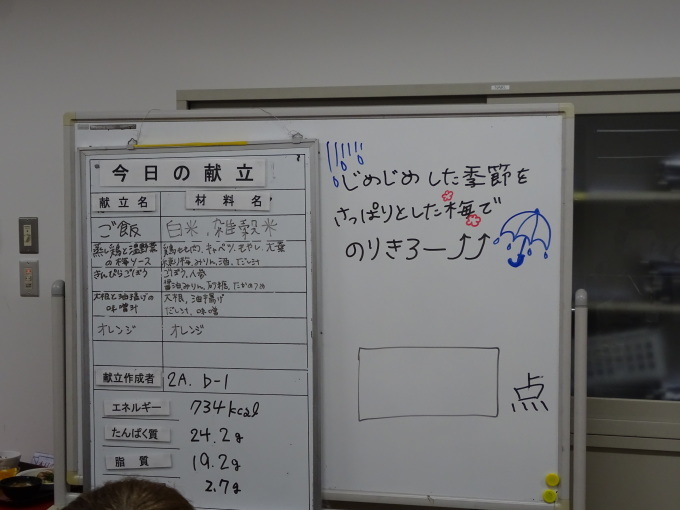 今日の献立
献立名 材料名
ご飯 白米、雑穀米
蒸し鶏と温野菜 鶏むね肉、キャベツ、もやし、
の梅ソース 練り梅、みりん、酒、だし汁
きんぴらごぼう ごぼう、人参
醤油、みりん、砂糖、たかのつめ
大根と油揚げの 大根、油揚げ
味噌汁 だし汁、味噌
オレンジ オレンジ
献立作成者 2A. b-1
エネルギー 734kcal
たんぱく質 24.2g
脂質 19.2g
2.7g
じめじめした季節を
さっぱりとした梅で
のりきろー⤴⤴
点